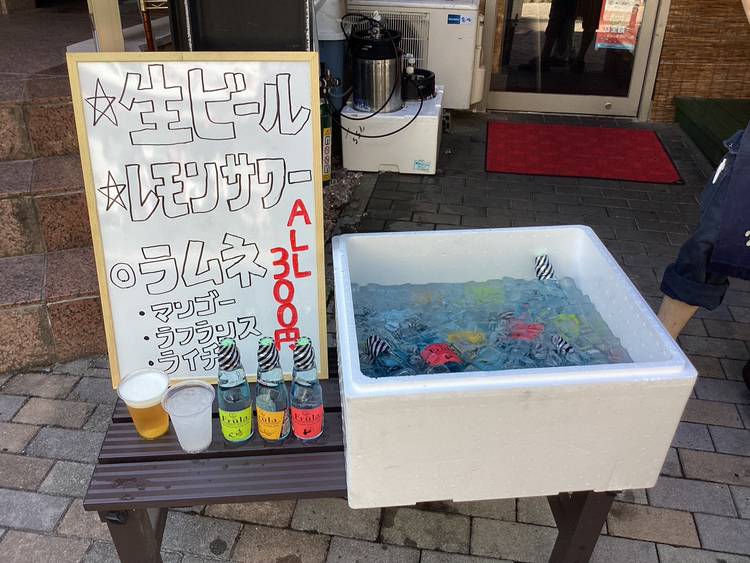 ☆生ビール
☆レモンサワー
◎ラムネ
・マンゴー
・ラフランス
・ライチ
ALL
300円
Frula
Frula
Frula